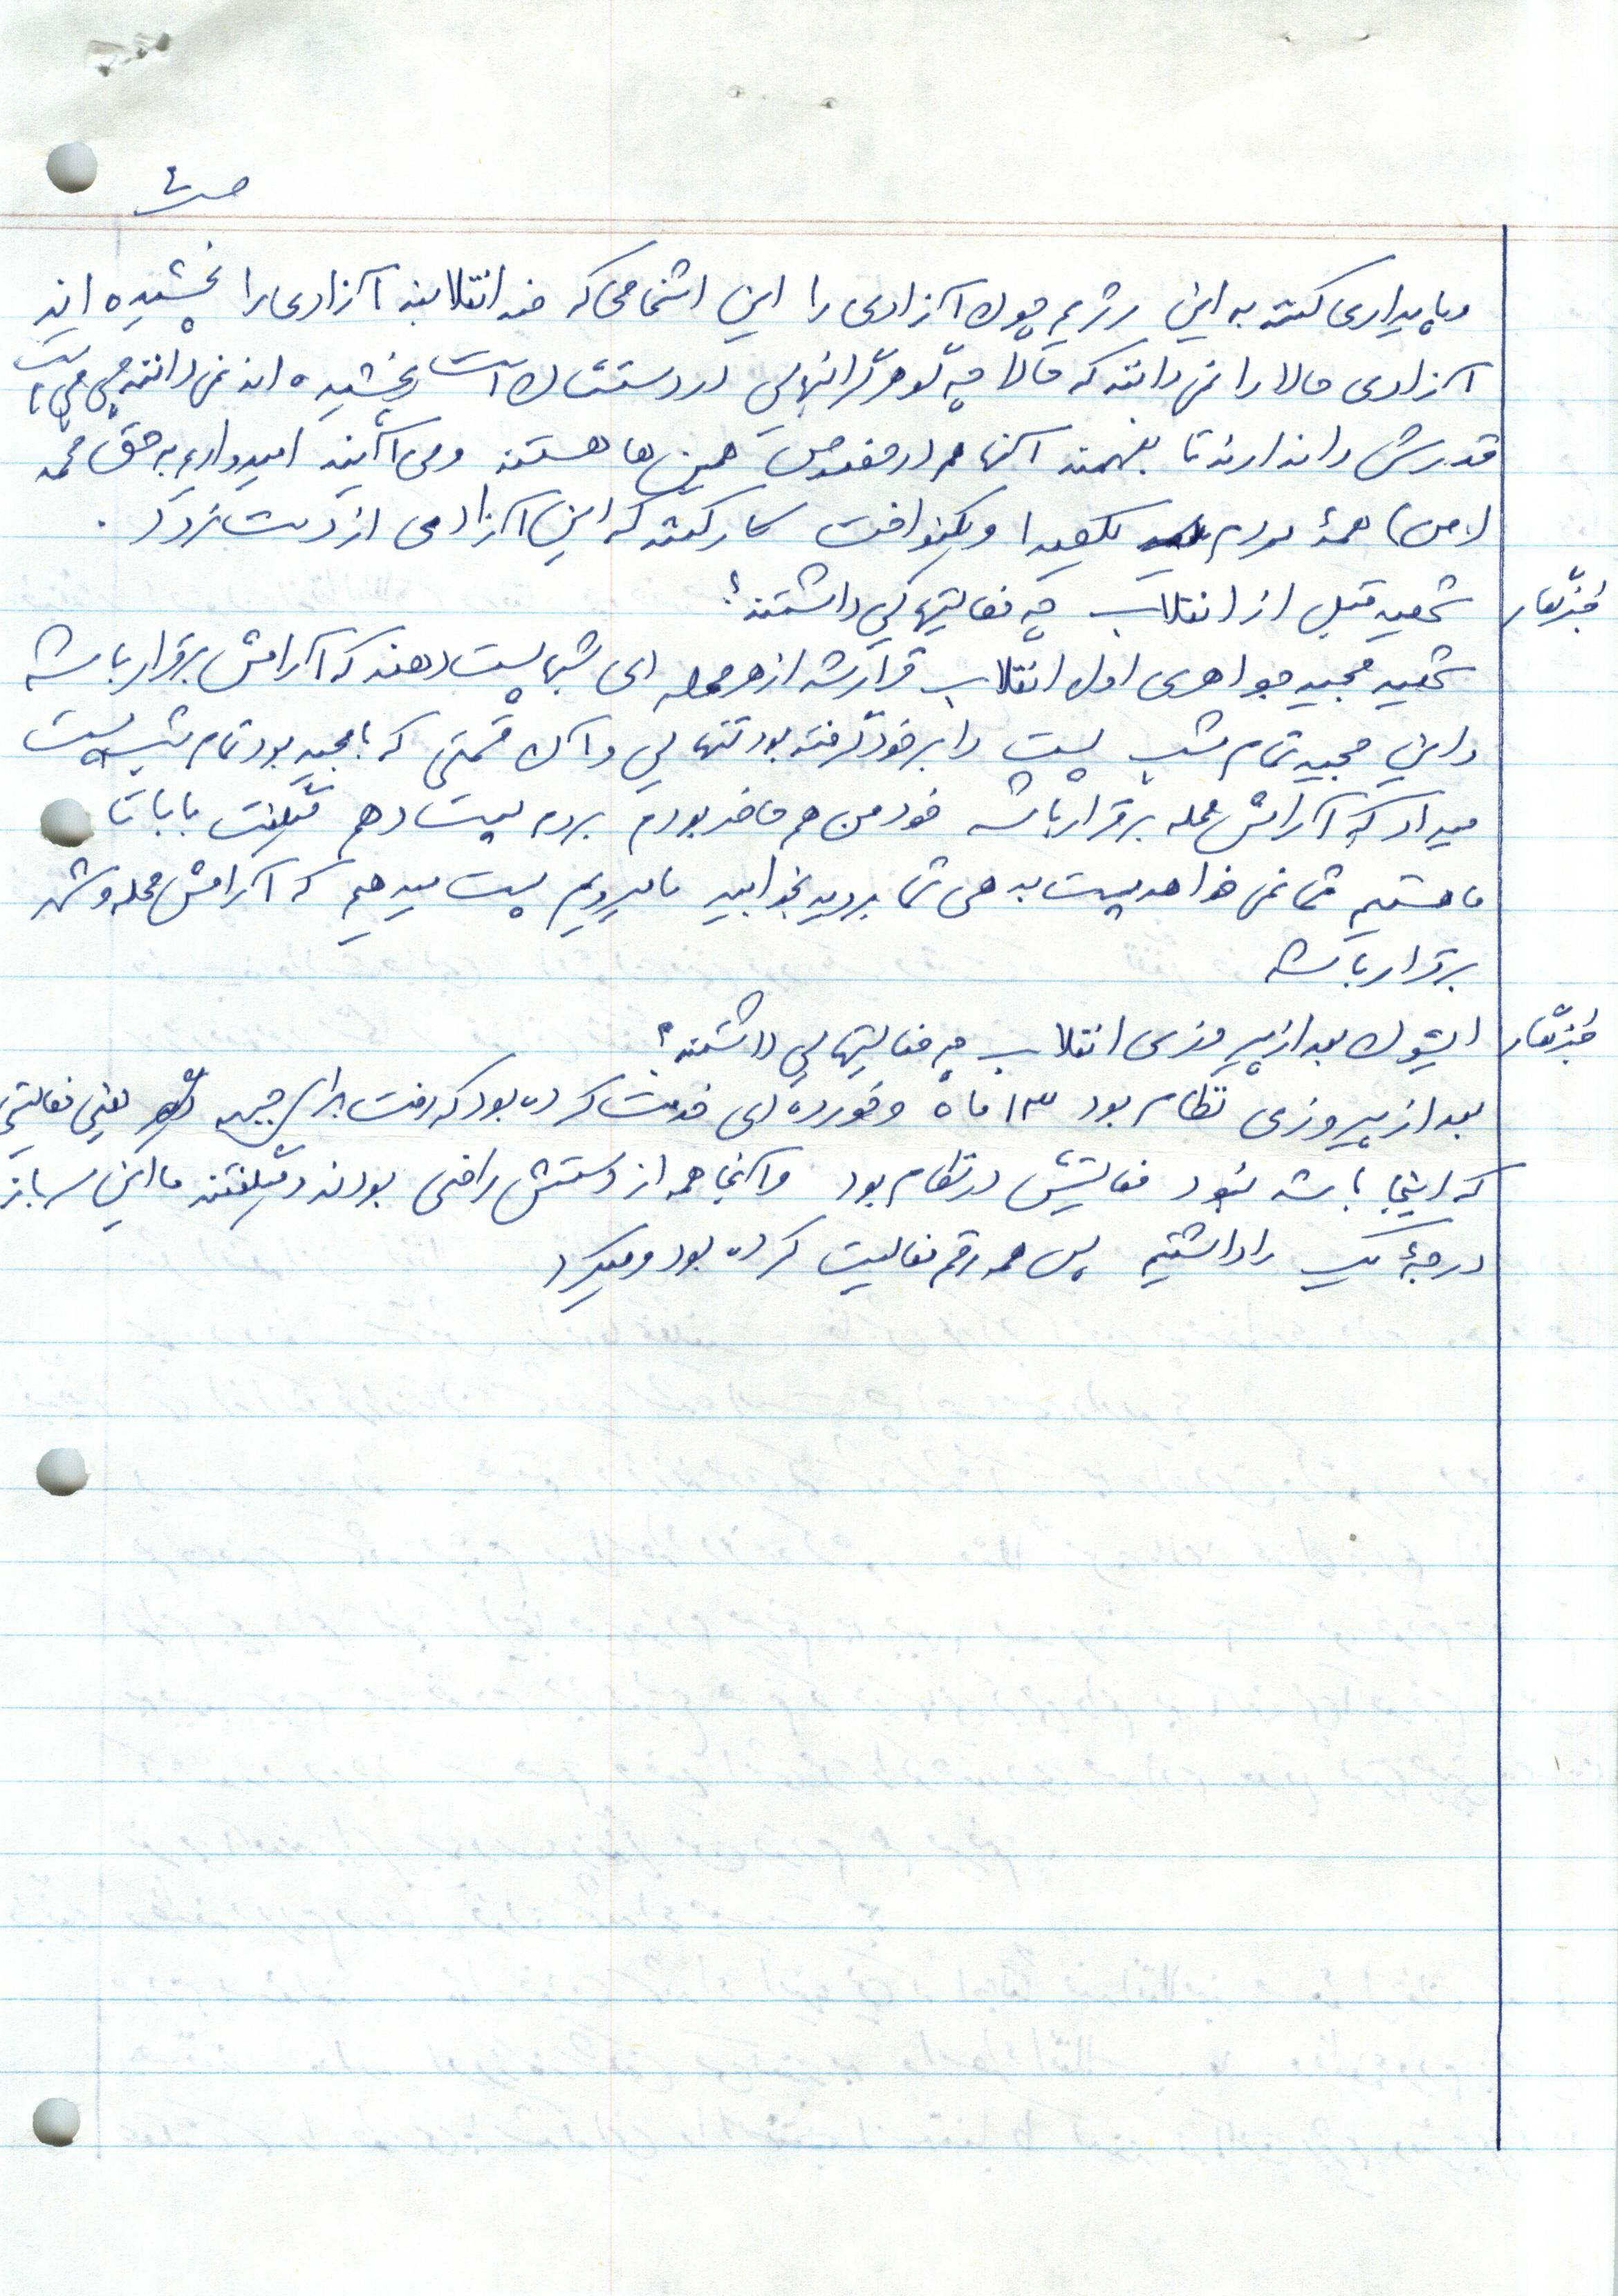 ص ۴
و پایداری کنند به این رژیم چون آزادی را این اشخاصی که ضد انقلابند آزادی را نچشیده اند
آزادی حالا را نمی دانند که حالا چه گوهر گرانبهایی در دستشان است نچشیده اند نمی دانند چی چی است
قدرش را ندارند تا بفهمند آنها هم در همین ها هستند و می آیند امیدواریم به حق محمد
(ص) همهٔ مردم یکصدا و یکنواخت کار کنند که این آزادی از دست نرود .
خبرنگار شهید قبل از انقلاب چه فعالیتهایی داشتند؟
شهید مجید جواهری اول انقلاب قرار شد از هر محله ای شبها پست دهند که آرامش برقرار باشد
و این مجید تمام شب پست را بر خود گرفته بود تنهایی و آن قسمتی که با مجید بود تمام شب پست
میداد که آرامش محله برقرار باشد خود من هم حاضر بودم بروم پست دهم میگفت بابا تا
ما هستیم شما نمی خواهد پست بدهی شما بروید بخوابید ما میرویم پست میدهیم که آرامش محله و شهر
برقرار باشد
خبرنگار ایشون بعد از پیروزی انقلاب چه فعالیتهایی داشتند؟
بعد از پیروزی نظام بود ۱۳ ماه و خورده ای خدمت کرده بود که رفت برای جبهه یعنی فعالیتی
که اینجا باشد نبود فعالیتش در نظام بود و آنجا همه از دستش راضی بودند و میگفتند ما این سرباز
درجهٔ یک را داشتیم پس همه رقم فعالیت کرده بود و میکرد